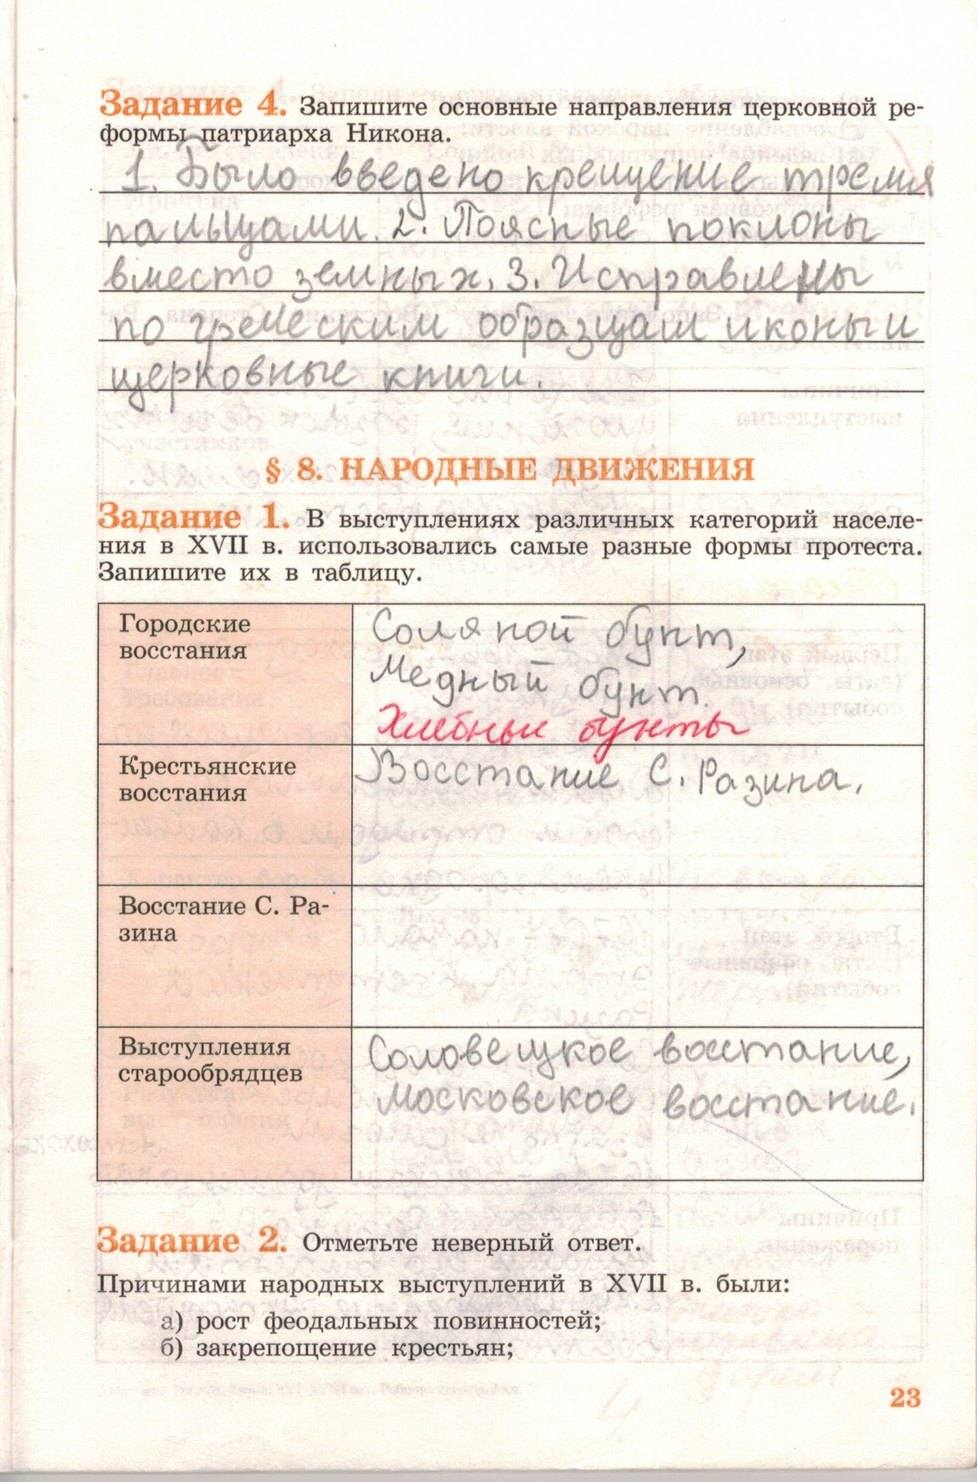 Задание 4. Запишите основные направления церковной ре-
формы патриарха Никона.
1. Было введено крещение тремя
пальцами. 2. Поясные поклоны
вместо земных. 3. Исправлены
по греческим образцам иконы и
церковные книги.
§ 8. НАРОДНЫЕ ДВИЖЕНИЯ
Задание 1. В выступлениях различных категорий населе-
ния в XVII в. использовались самые разные формы протеста.
Запишите их в таблицу.
Городские
восстания
Соляной бунт,
Медный бунт.
Хлебные бунты
Крестьянские
восстания
Восстание С. Разина.
Восстание С. Ра-
зина
Выступления
старообрядцев
Соловецкое восстание,
Московское восстание.
Задание 2. Отметьте неверный ответ.
Причинами народных выступлений в XVII в. были:
а) рост феодальных повинностей;
б) закрепощение крестьян;
23